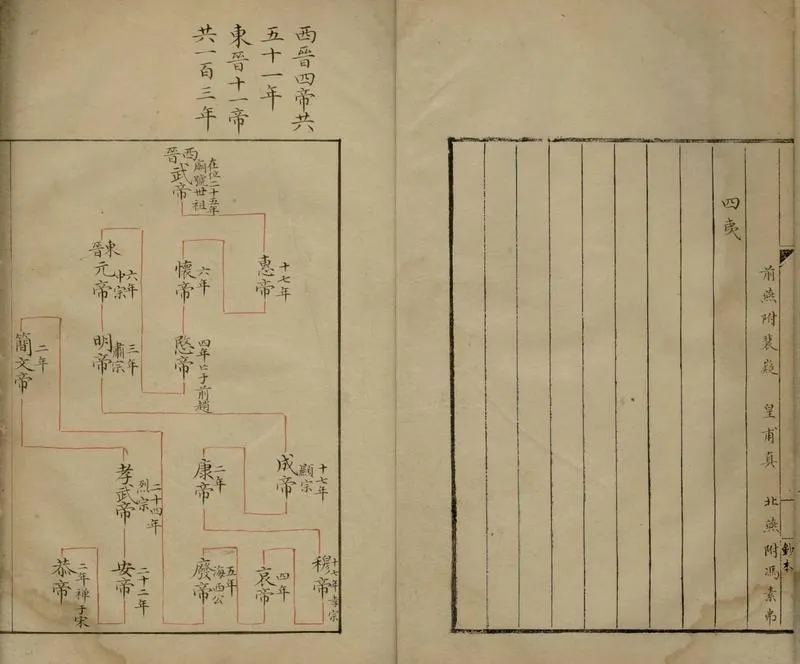 四夷
前燕附裴嶷 皇甫真 北燕附馮素弗
鈔本
西晉四帝共
五十一年
東晉十一帝
共一百三年
西晉武帝 廟號世祖 在位二十五年
惠帝 十七年
懷帝 六年
愍帝 四年亡于前趙
東晉元帝 中宗 六年
明帝 肅宗 三年
成帝 顯宗 十七年
康帝 二年
穆帝 孝宗
哀帝 四年
廢帝 海西公 五年
簡文帝 二年
孝武帝 烈宗 二十四年
安帝 二十二年
恭帝 二年禅于宋